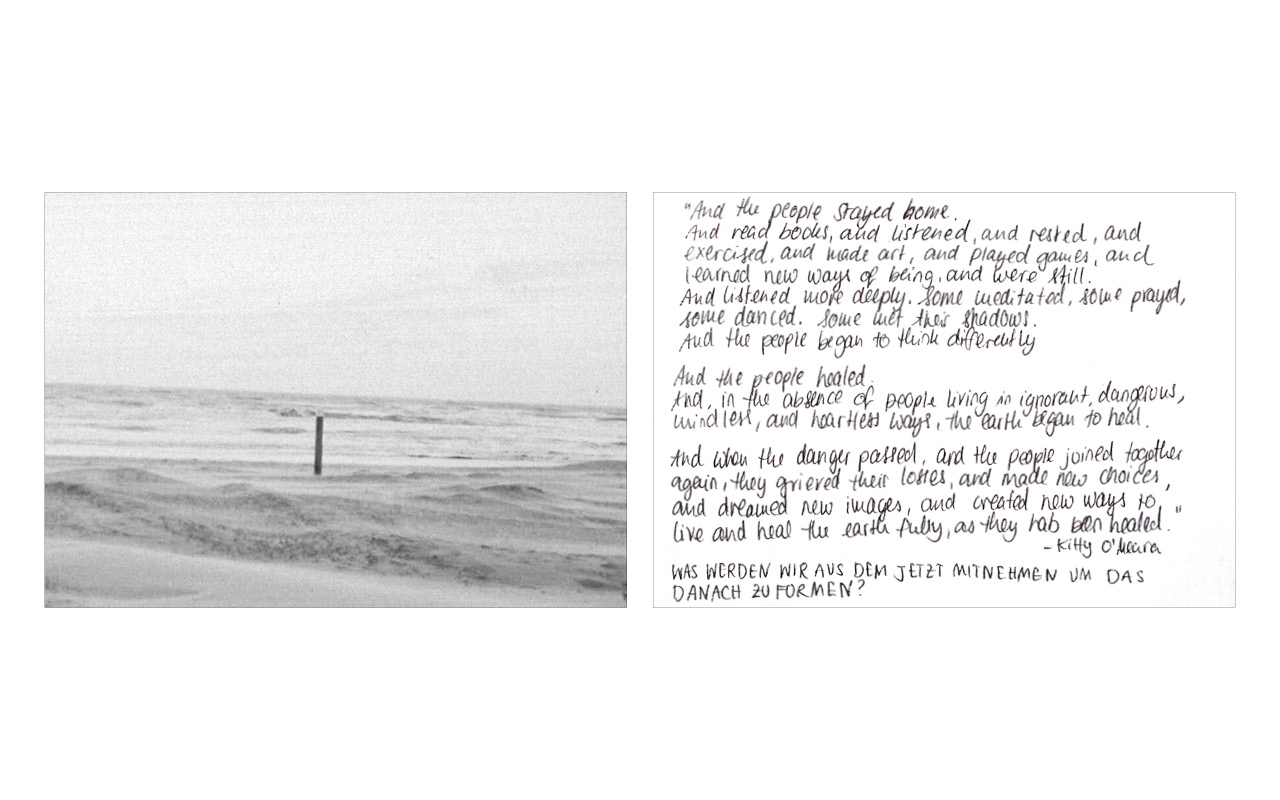 "And the people stayed home.
And read books, and listened, and rested, and
exercised, and made art, and played games, and
learned new ways of being, and were still.
And listened more deeply. Some meditated, some prayed,
some danced. Some met their shadows.
And the people began to think differently
And the people healed.
And, in the absence of people living in ignorant, dangerous,
mindless, and heartless ways, the earth began to heal.
And when the danger passed, and the people joined together
again, they grieved their losses, and made new choices,
and dreamed new images, and created new ways to
live and heal the earth fully, as they hab been healed."
- Kitty O'Meara
WAS WERDEN WIR AUS DEM JETZT MITNEHMEN UM DAS
DANACH ZU FORMEN?